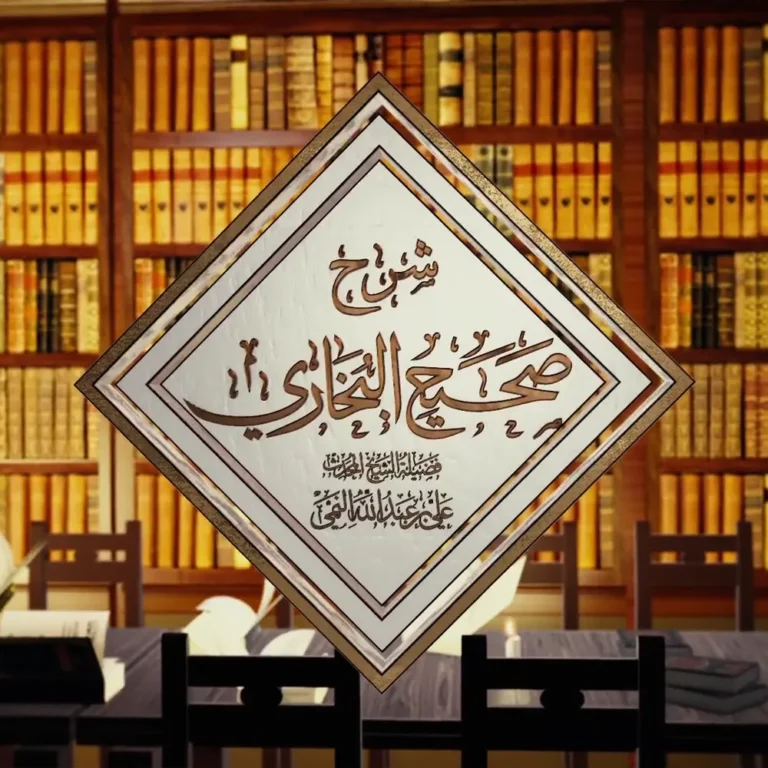 شرح
صحيح البخاري
فضيلة الشيخ المحدث
علي بن عبد الله النمي